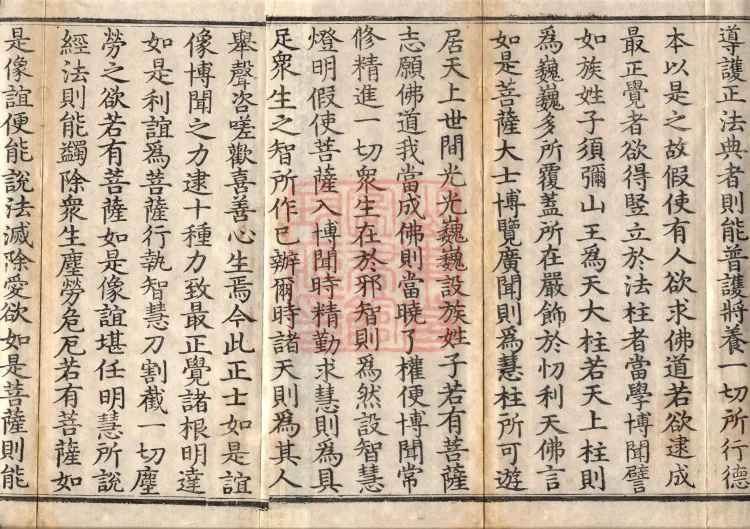 導護正法典者則能普護將養一切所行德
本以是之故假使有人欲求佛道若欲逮成
最正覺者欲得豎立於法柱者當學博聞譬
如族姓子須彌山王為天大柱若天上柱則
為巍巍多所覆蓋所在嚴飾於忉利天佛言
如是菩薩大士博覽廣聞則為慧柱所可遊
居天上世間光光巍巍設族姓子若有菩薩
志願佛道我當成佛則當曉了權便博聞常
修精進一切衆生在於邪智則為然設智慧
燈明假使菩薩入博聞時精勤求慧則為具
足衆生之智所作已辦爾時諸天則為其人
舉聲咨嗟歡喜善心生焉今此正士如是誼
像博聞之力逮十種力致最正覺諸根明達
如是利誼為菩薩行執智慧刀割截一切塵
勞之欲若有菩薩如是像誼堪任明慧所說
經法則能蠲除衆生塵勞危厄若有菩薩如
是像誼便能說法滅除愛欲如是菩薩則能